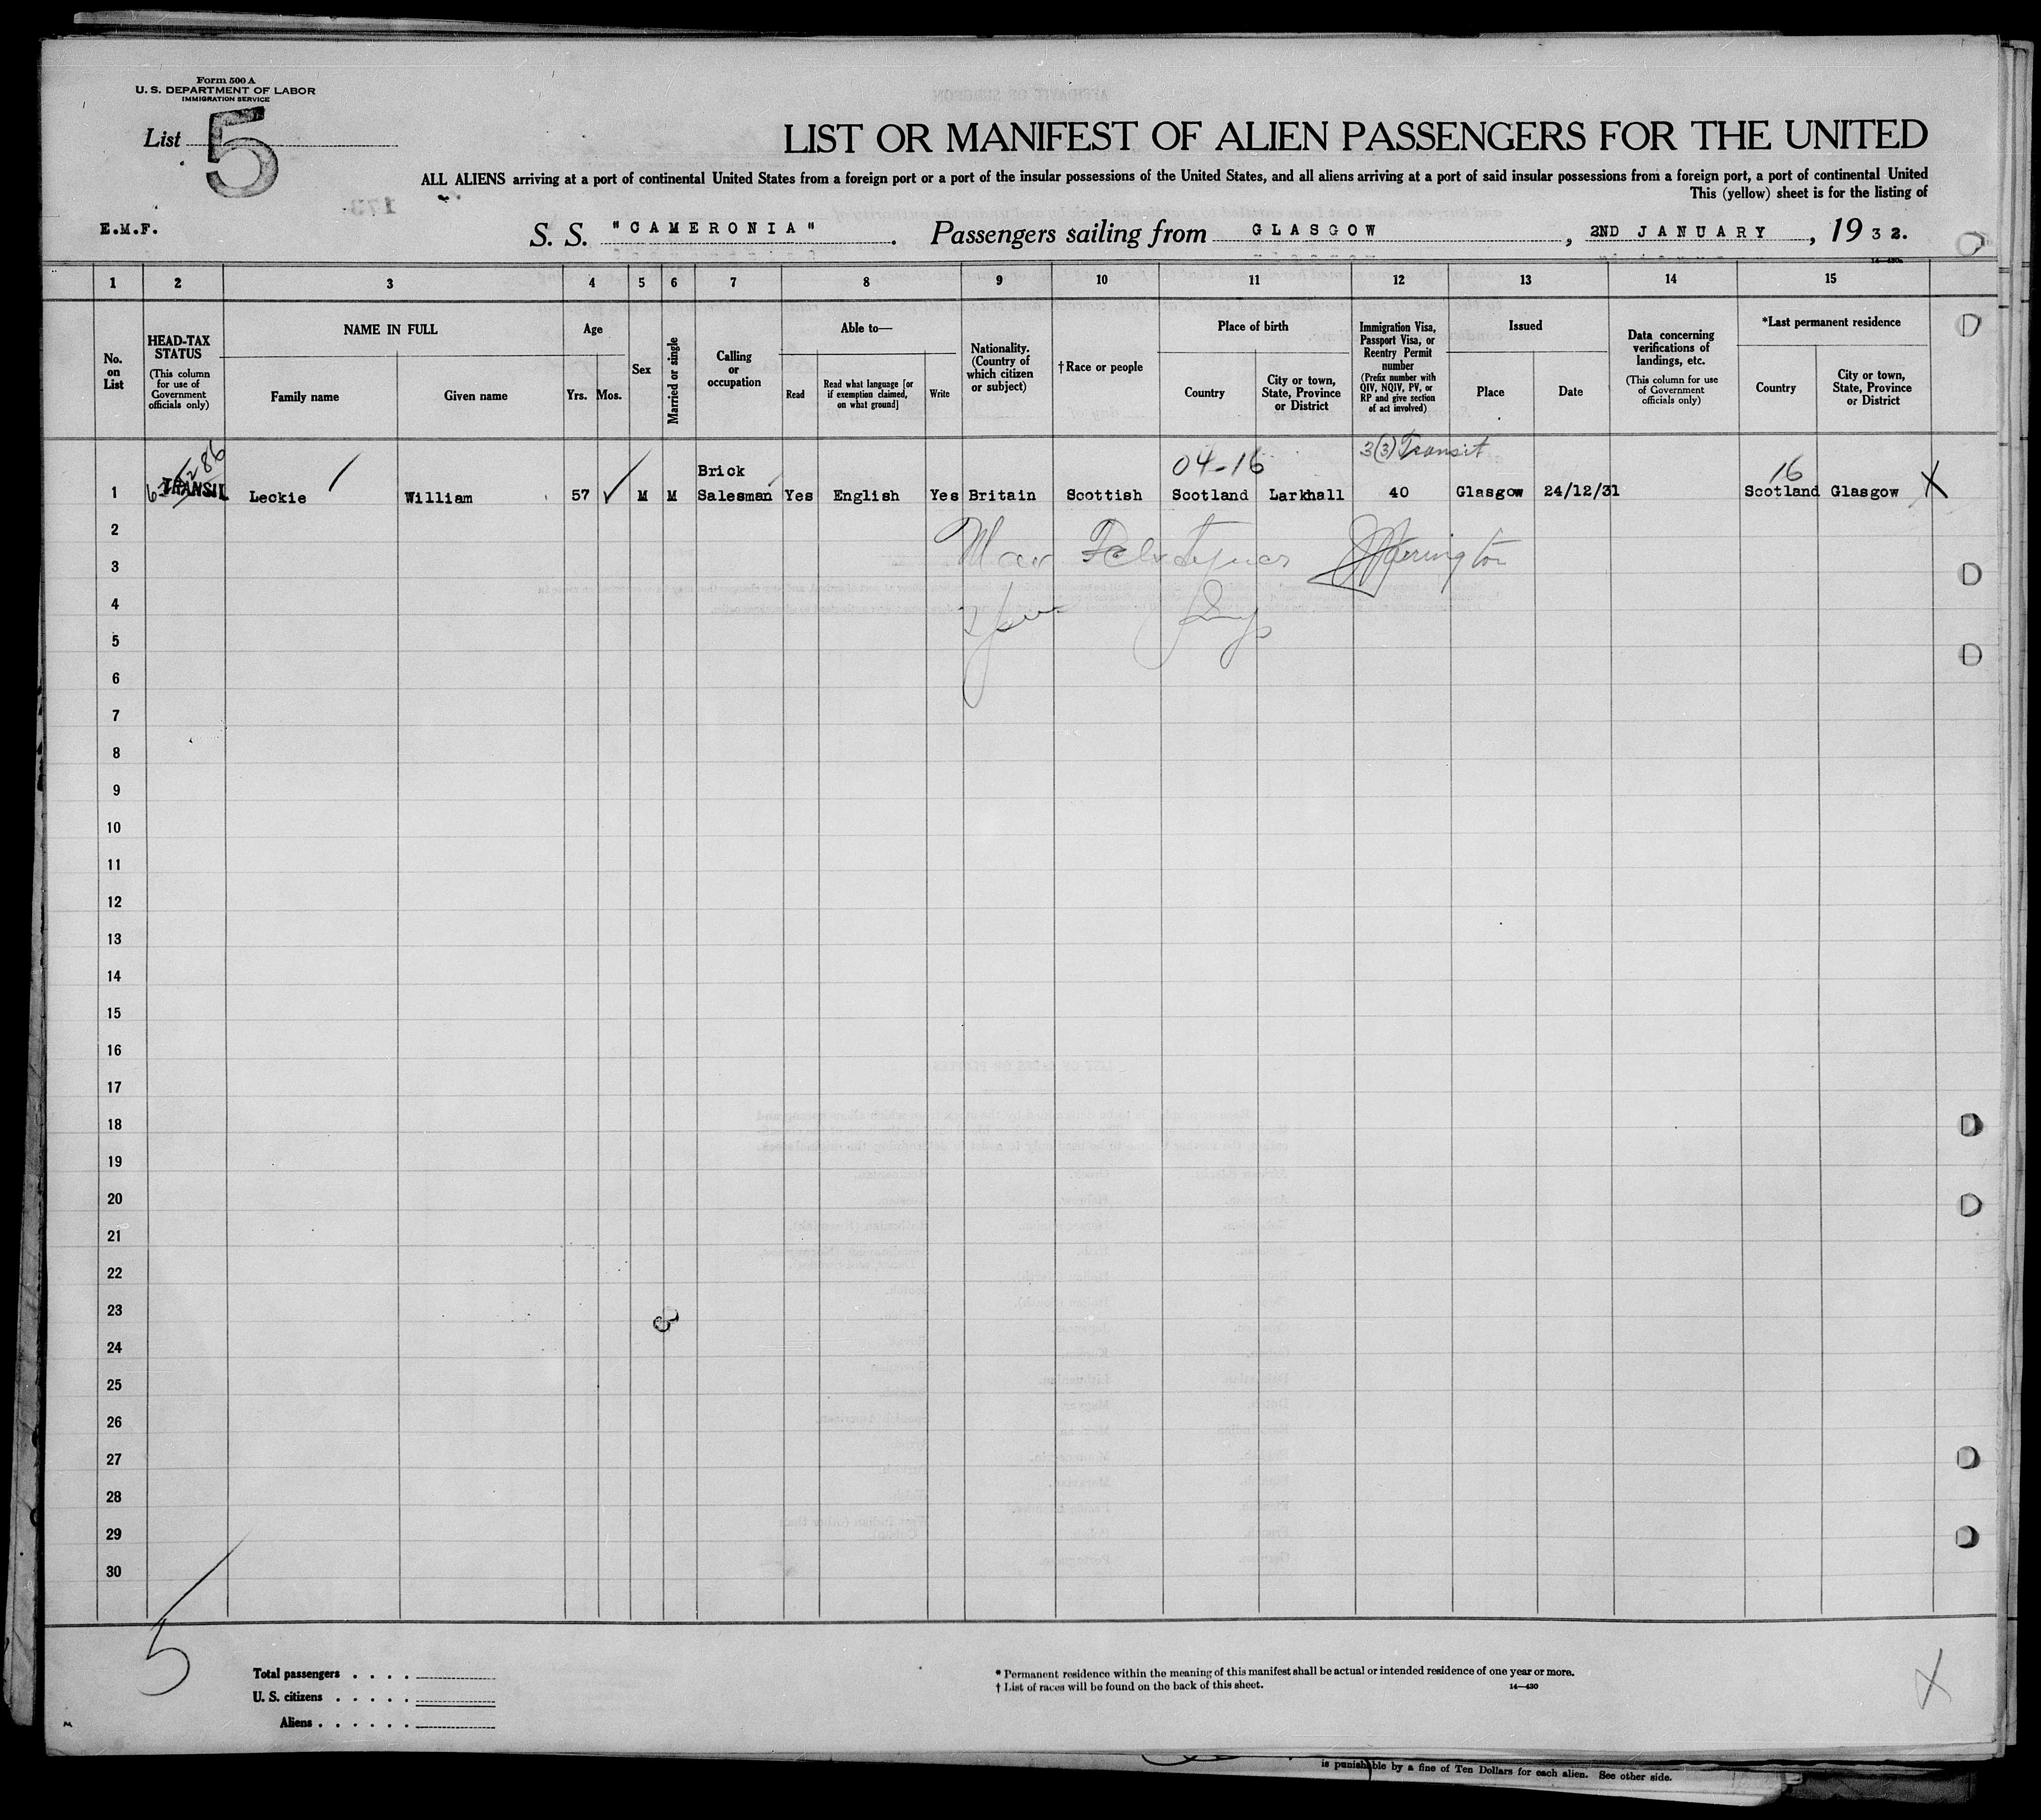 Form 500 A
U. S. DEPARTMENT OF LABOR
IMMIGRATION SERVICE
List 5
LIST OR MANIFEST OF ALIEN PASSENGERS FOR THE UNITED
ALL ALIENS arriving at a port of continental United States from a foreign port or a port of the insular possessions of the United States, and all aliens arriving at a port of said insular possessions from a foreign port, a port of continental United
This (yellow) sheet is for the listing of
E.M.F.
S. S. "CAMERONIA". Passengers sailing from GLASGOW, 2ND JANUARY, 1932.
14—430a
1 2 3 4 5 6 7 8 9 10 11 12 13 14 15
No. on List
HEAD-TAX STATUS
(This column for use of Government officials only)
NAME IN FULL
Family name
Given name
Age
Yrs. Mos.
Sex
Married or single
Calling or occupation
Able to—
Read
Read what language [or if exemption claimed, on what ground]
Write
Nationality. (Country of which citizen or subject)
†Race or people
Place of birth
Country
City or town, State, Province or District
Immigration Visa, Passport Visa, or Reentry Permit number
(Prefix number with QIV, NQIV, PV, or RP and give section of act involved)
Issued
Place
Date
Data concerning verifications of landings, etc.
(This column for use of Government officials only)
*Last permanent residence
Country
City or town, State, Province or District
04-16 3(3) Transit 16
1 TRANSIT Leckie William 57 M M Brick Salesman Yes English Yes Britain Scottish Scotland Larkhall 40 Glasgow 24/12/31 Scotland Glasgow X
2
3
4
5
6
7
8
9
10
11
12
13
14
15
16
17
18
19
20
21
22
23
24
25
26
27
28
29
30
5
Total passengers . . . .
U. S. citizens . . . . .
Aliens . . . . . .
* Permanent residence within the meaning of this manifest shall be actual or intended residence of one year or more.
† List of races will be found on the back of this sheet.
14—430
X
is punishable by a fine of Ten Dollars for each alien. See other side.